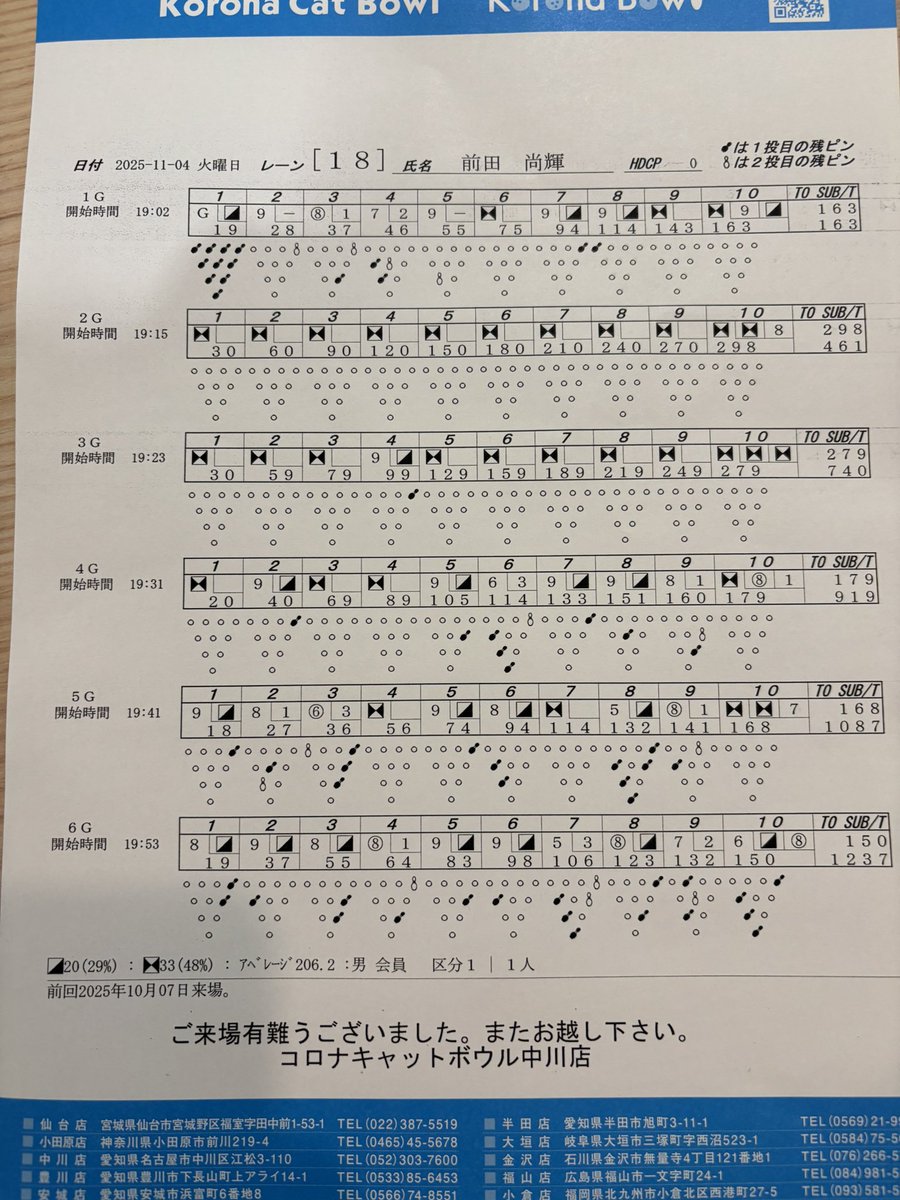 Korona Cat Bowl Korona Bowl
日付 2025-11-04 火曜日 レーン [18] 氏名 前田 尚輝 HDCP 0 は1投目の残ピン
は2投目の残ピン
1G 1 2 3 4 5 6 7 8 9 10 TO SUB/T
開始時間 19:02 G ◪ 9 － ⑧ 1 7 2 9 － ⧓ 9 ◪ 9 ◪ ⧓ ⧓ 9 ◪ 163
19 28 37 46 55 75 94 114 143 163 163
2G 1 2 3 4 5 6 7 8 9 10 TO SUB/T
開始時間 19:15 ⧓ ⧓ ⧓ ⧓ ⧓ ⧓ ⧓ ⧓ ⧓ ⧓ ⧓ 8 298
30 60 90 120 150 180 210 240 270 298 461
3G 1 2 3 4 5 6 7 8 9 10 TO SUB/T
開始時間 19:23 ⧓ ⧓ ⧓ 9 ◪ ⧓ ⧓ ⧓ ⧓ ⧓ ⧓ ⧓ ⧓ 279
30 59 79 99 129 159 189 219 249 279 740
4G 1 2 3 4 5 6 7 8 9 10 TO SUB/T
開始時間 19:31 ⧓ 9 ◪ ⧓ ⧓ 9 ◪ 6 3 9 ◪ 9 ◪ 8 1 ⧓ ⑧ 1 179
20 40 69 89 105 114 133 151 160 179 919
5G 1 2 3 4 5 6 7 8 9 10 TO SUB/T
開始時間 19:41 9 ◪ 8 1 ⑥ 3 ⧓ 9 ◪ 8 ◪ ⧓ 5 ◪ ⑧ 1 ⧓ ⧓ 7 168
18 27 36 56 74 94 114 132 141 168 1087
6G 1 2 3 4 5 6 7 8 9 10 TO SUB/T
開始時間 19:53 8 ◪ 9 ◪ 8 ◪ ⑧ 1 9 ◪ 9 ◪ 5 3 ⑧ ◪ 7 2 6 ◪ ⑧ 150
19 37 55 64 83 98 106 123 132 150 1237
◪20(29%) : ⧓33(48%) : ｱﾍﾞﾚｰｼﾞ206.2 :男 会員 区分1 | 1人
前回2025年10月07日来場。
ご来場有難うございました。またお越し下さい。
コロナキャットボウル中川店
仙台店 宮城県仙台市宮城野区福室字田中前1-53-1 TEL(022)387-5519 半田店 愛知県半田市旭町3-11-1 TEL(0569)21-9
小田原店 神奈川県小田原市前川219-4 TEL(0465)45-5678 大垣店 岐阜県大垣市三塚町字西沼523-1 TEL(0584)75-5
中川店 愛知県名古屋市中川区江松3-110 TEL(052)303-7600 金沢店 石川県金沢市無量寺4丁目121番地1 TEL(076)266-5
豊川店 愛知県豊川市下長山町上アライ14-1 TEL(0533)85-6453 福山店 広島県福山市一文字町24-1 TEL(084)981-5
安城店 愛知県安城市浜富町6番地8 TEL(0566)74-8551 小倉店 福岡県北九州市小倉北区西港町27-5 TEL(093)581-5